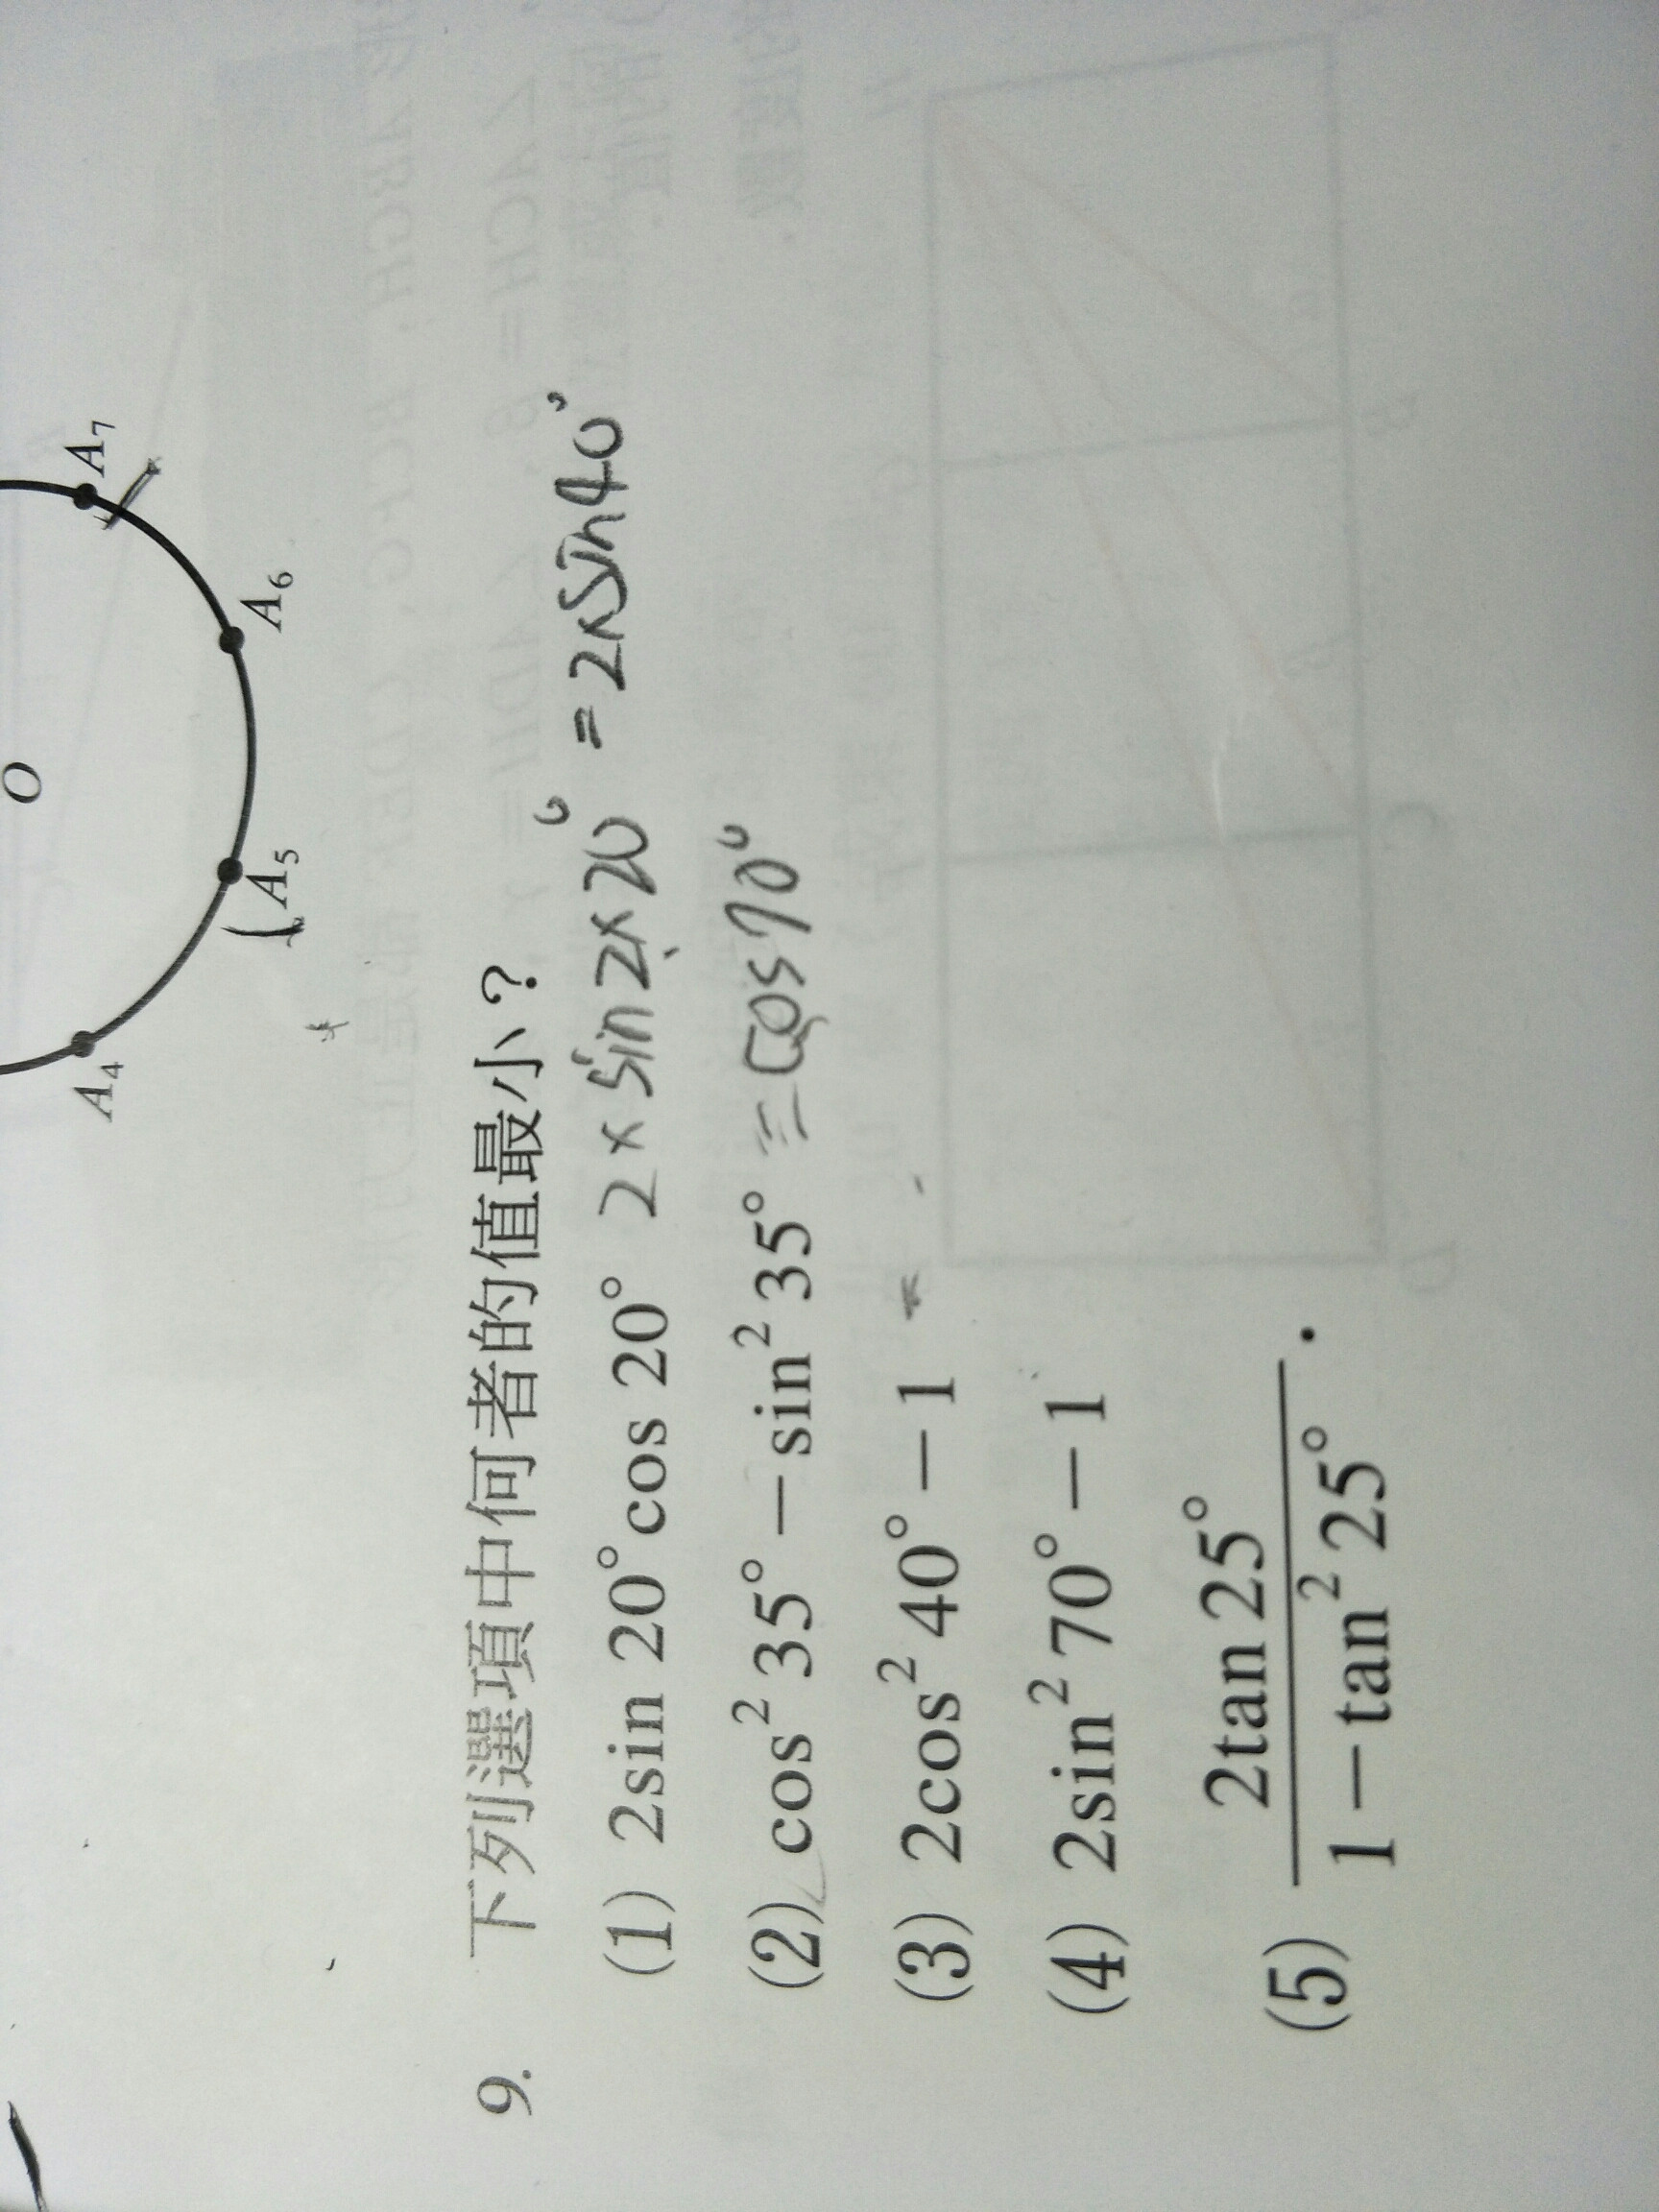 O
A₄
A₅
A₆
A₇
9. 下列選項中何者的值最小？
(1) 2sin 20° cos 20° 2 × sin 2×20° = 2×sin40°
(2) cos² 35° − sin² 35° = cos70°
(3) 2cos² 40° − 1
(4) 2sin² 70° − 1
(5) 2tan 25° / 1 − tan² 25° .